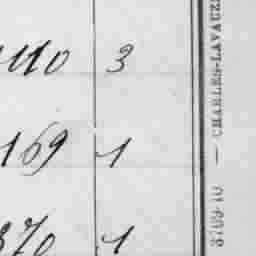 110 3
169 1
370 1
3709-10 — CHARLES-LAVAUZE